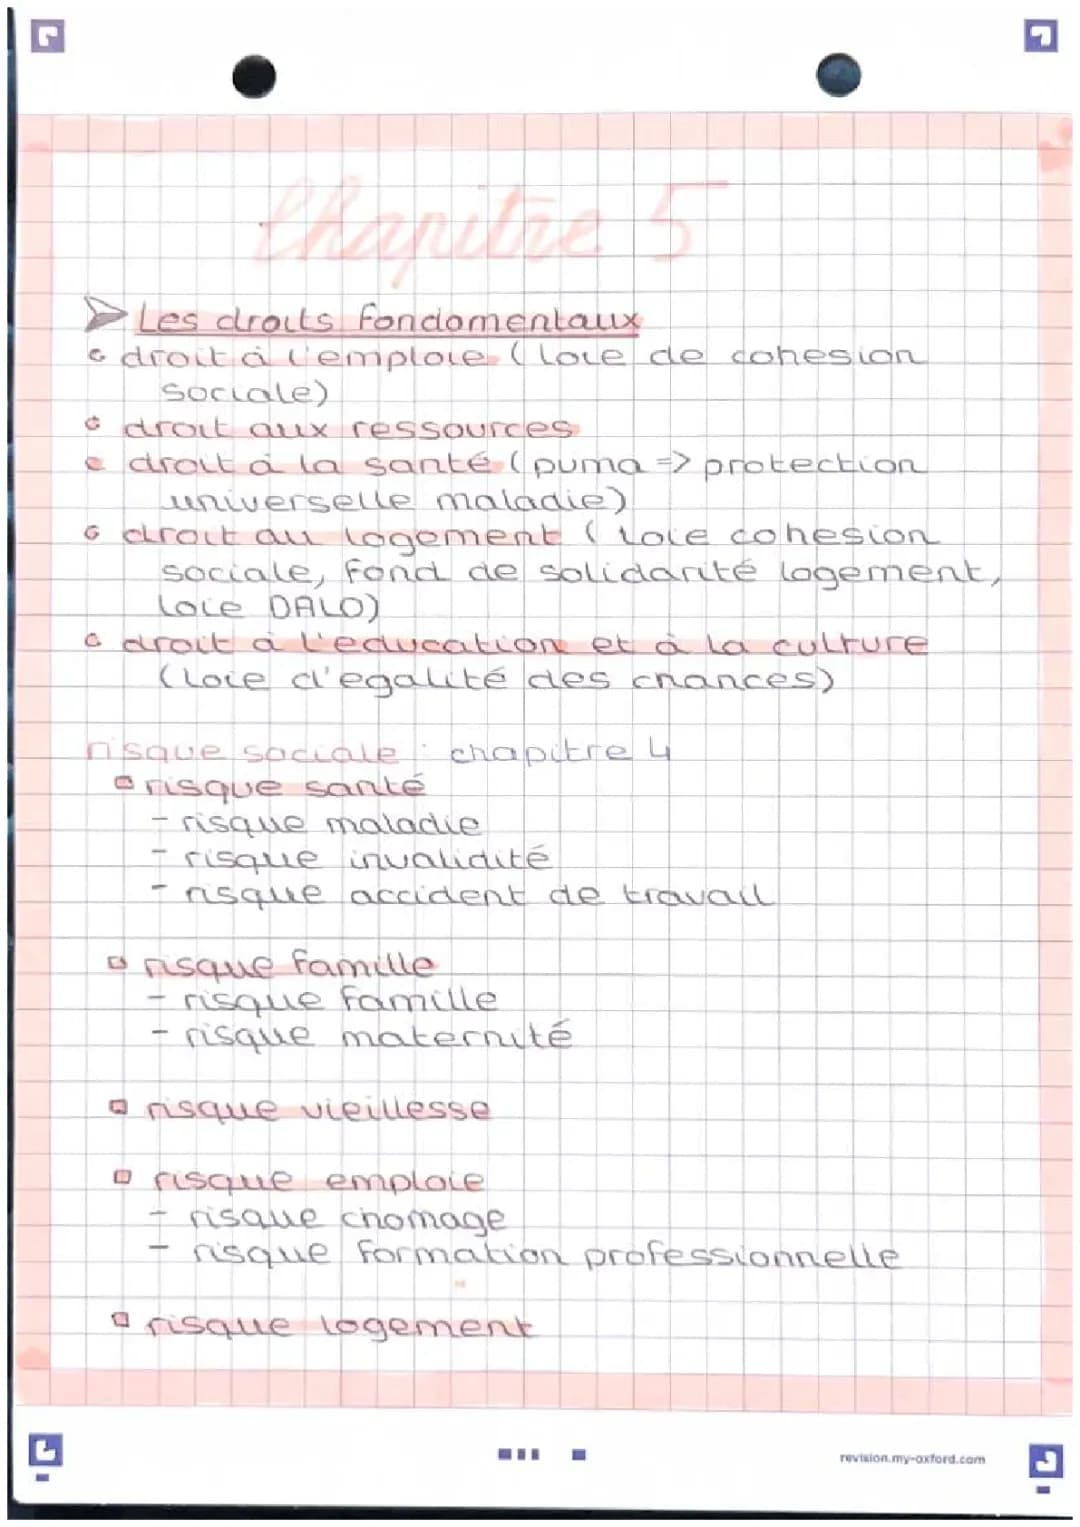 Chapitre 5
Les droits fondamentaux
droit à l'emploie (loie de cohesion
sociale)
droit aux ressources
droit à la santé (puma => protection
universelle maladie)
droit au logement (loie cohesion
sociale, fond de solidarité logement,
loie DALO)
droit à l'education et à la culture
(loie d'egalité des chances)
risque sociale : chapitre 4
risque santé
- risque maladie
- risque invalidité
- risque accident de travail
risque famille
- risque famille
- risque maternité
risque vieillesse
risque emploie
- risque chomage
- risque formation professionnelle
risque logement
revision.my-oxford.com